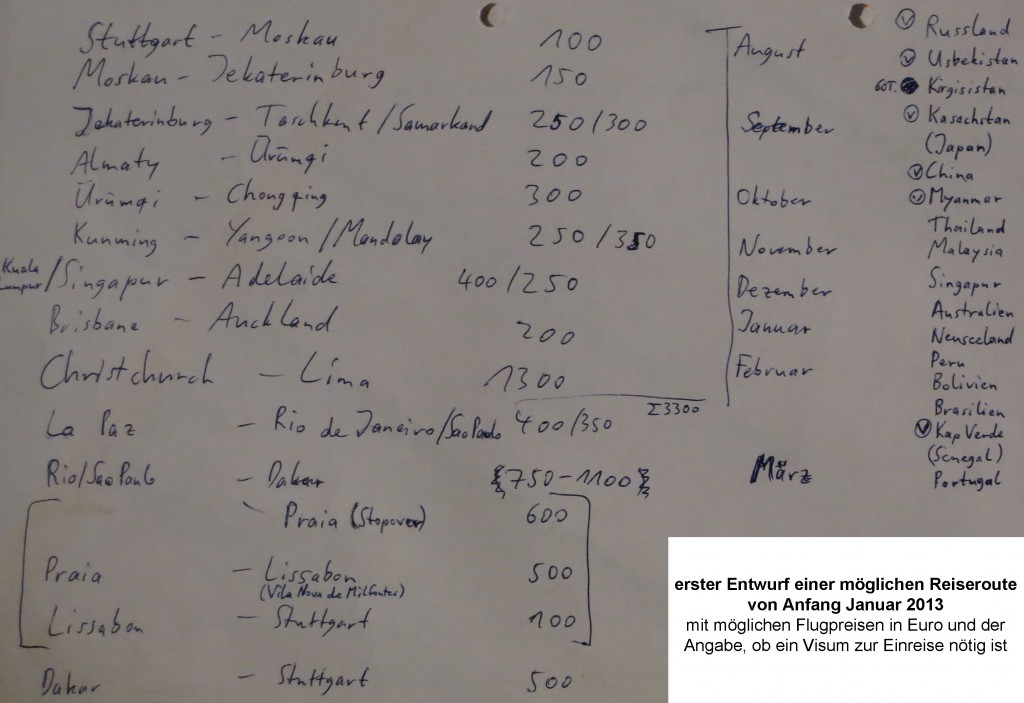 Stuttgart - Moskau 100
Moskau - Jekaterinburg 150
Jekaterinburg - Taschkent/Samarkand 250/300
Almaty - Ürümqi 200
Ürümqi - Chongqing 300
Kunming - Yangoon/Mandalay 250/350
Kuala Lumpur/Singapur - Adelaide 400/250
Brisbane - Auckland 200
Christchurch - Lima 1300
Σ3300
La Paz - Rio de Janeiro/Sao Paulo 400/350
Rio/Sao Paulo - Dakar {750-1100}
Praia (Stopover) 600
Praia - Lissabon 500
(Vila Nova de Milfontes)
Lissabon - Stuttgart 100
Dakar - Stuttgart 500
August
September
Oktober
November
Dezember
Januar
Februar
März
Russland
Usbekistan
Kirgisistan
Kasachstan
(Japan)
China
Myanmar
Thailand
Malaysia
Singapur
Australien
Neuseeland
Peru
Bolivien
Brasilien
Kap Verde
(Senegal)
Portugal
erster Entwurf einer möglichen Reiseroute
von Anfang Januar 2013
mit möglichen Flugpreisen in Euro und der
Angabe, ob ein Visum zur Einreise nötig ist